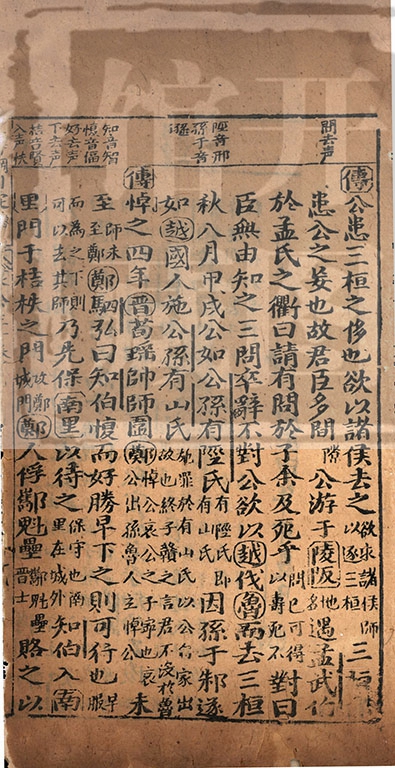 間去声
陘音邢
孫于音
遜
知音智
愎音偪
好去声
下去声
桔音賢
入声柣
傳公患三桓之侈也欲以諸侯去之欲求諸侯師以逐三桓三桓
患公之妄也故君臣多間隙公游于陵阪地名遇孟武伯
於孟氏之衢曰請有問於子余及死乎問己可得以壽死不對曰
臣無由知之三問卒辭不對公欲以越伐魯而去三桓
秋八月甲戌公如公孫有陘氏有陘氏即有山氏因孫于邾遂
如越國人施公孫有山氏施罪於有山氏以公從家出故也終子贛之言君不没於魯
傳悼之四年晉荀瑤帥師圍鄭悼公哀公之子寧也哀公出孫魯人立悼公未
至師未至鄭鄭駟弘曰知伯愎而好勝早下之則可行也早服
而為之下則可以去其師乃先保南里以待之保守也南里在城外知伯入南
里門于桔柣之門攻鄭城門鄭人俘酅魁壘酅魁壘晉士賂之以
开
馆